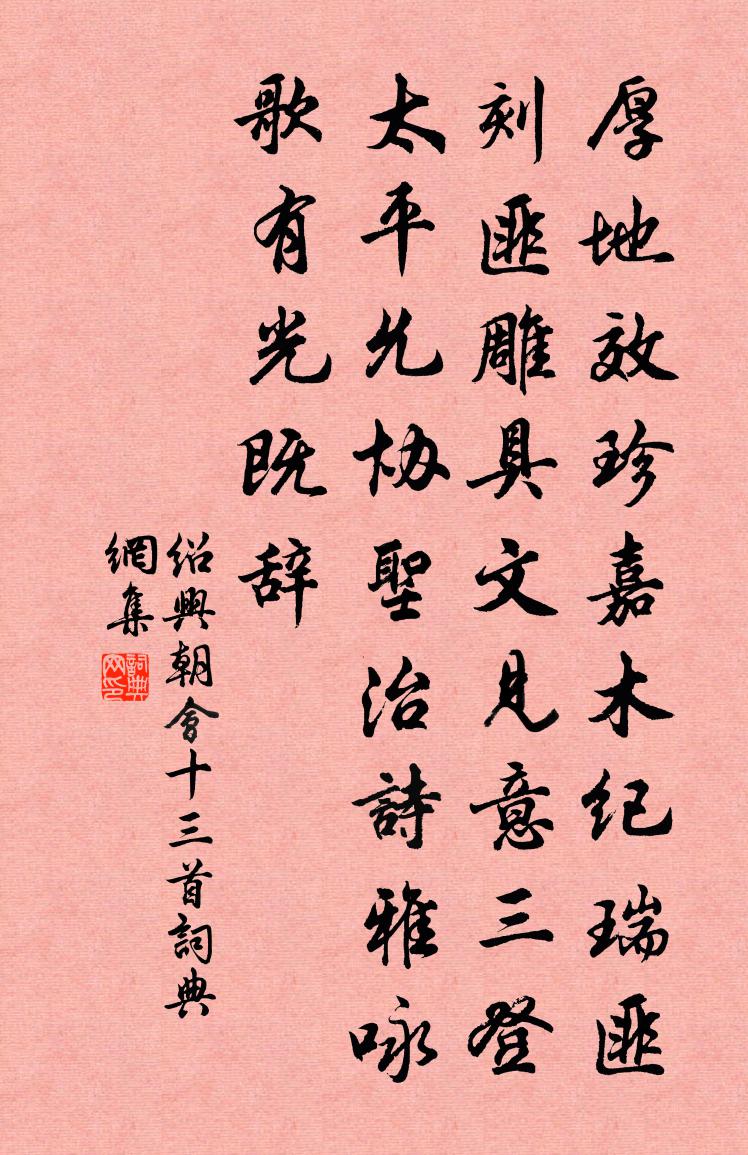 厚地效珍嘉木纪瑞匪
刻匪雕具文见意三登
太平允协聖治詩雅咏
歌有光既辞
绍興朝會十三首詞典
網集
詞典
网印